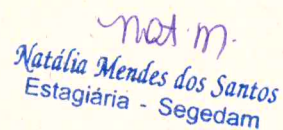 Nat. M.
Natália Mendes dos Santos
Estagiária - Segedam